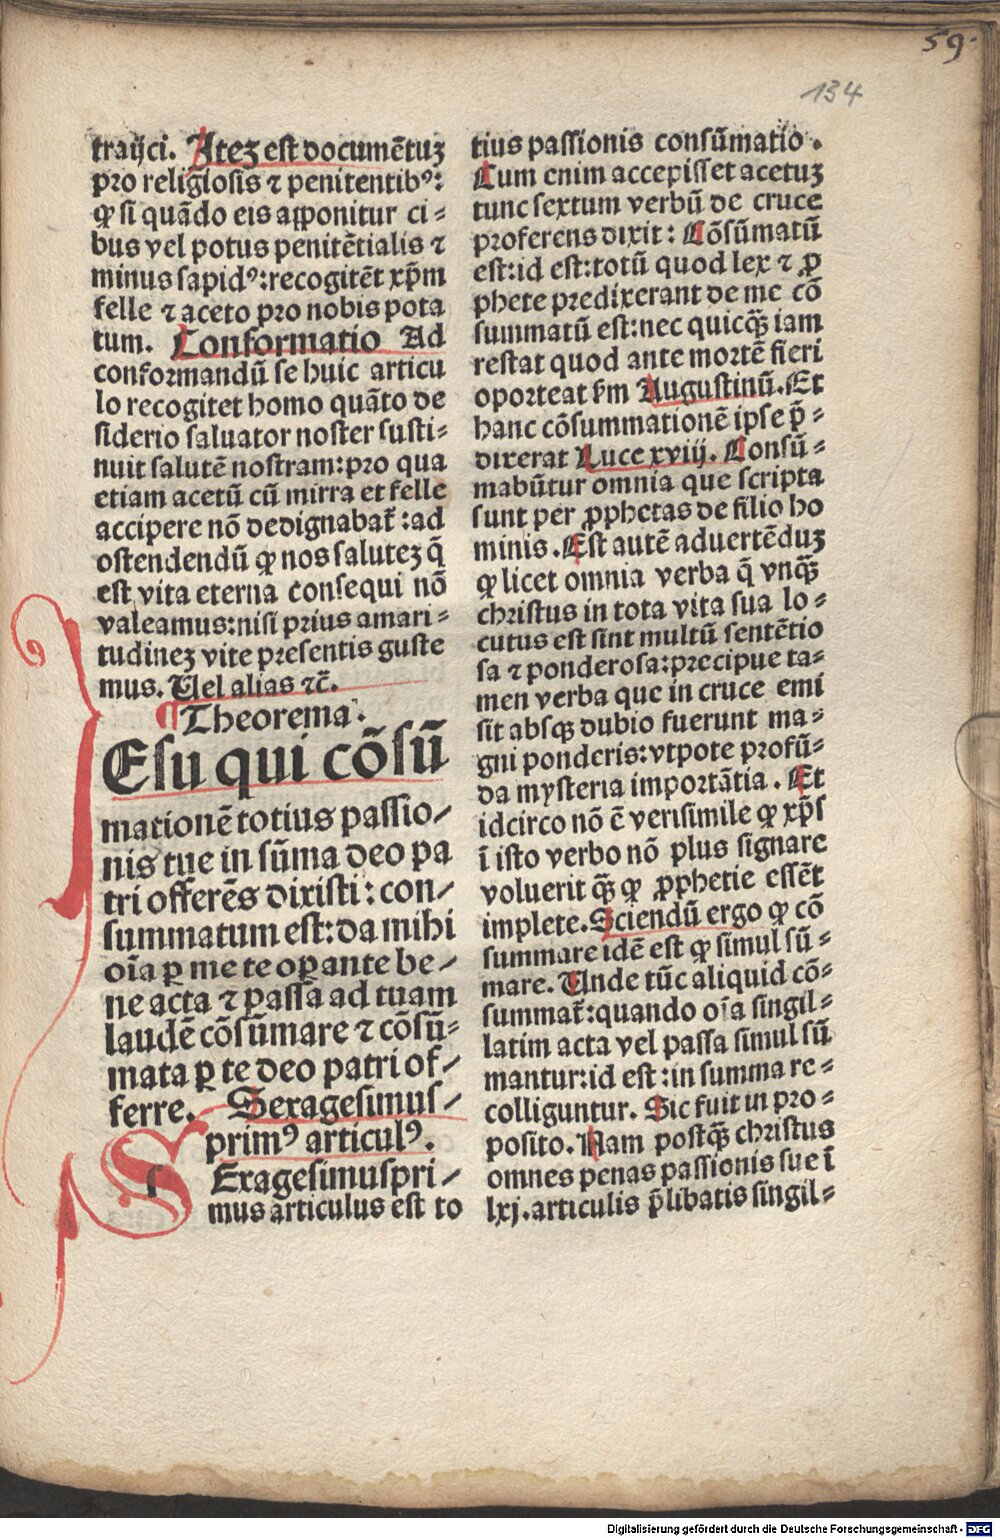 59.
134
traijci. Itez est documētuz
pro religiosis ⁊ penitentibꝰ:
ꝙ si quādo eis apponitur ci⸗
bus vel potus penitētialis ⁊
minus sapidꝰ: recogitēt xp̄m
felle ⁊ aceto pro nobis pota
tum. Conformatio Ad
conformandū se huic articu
lo recogitet homo quāto de
siderio saluator noster susti⸗
nuit salutē nostram: pro qua
etiam acetū cū mirra et felle
accipere nō dedignabat̄: ad
ostendendū ꝙ nos salutez q̄
est vita eterna consequi nō
valeamus: nisi prius amari⸗
tudinez vite presentis guste
mus. Uel alias ⁊c̄.
¶ Theorema.
IEsu qui cōsū
mationē totius passio⸗
nis tue in sūma deo pa
tri offerēs dixisti: con⸗
summatum est: da mihi
oīa ꝑ me te oꝑante be⸗
ne acta ⁊ ꝑassa ad tuam
laudē cōsūmare ⁊ cōsū⸗
mata ꝑ te deo patri of⸗
ferre. Sexagesimus⸗
primꝰ articulꝰ.
SExagesimuspri⸗
mus articulus est to
tius passionis consūmatio.
Cum enim accepisset acetuz
tunc sextum verbū de cruce
proferens dixit: Cōsūmatū
est: id est: totū quod lex ⁊ ꝓ
phete predixerant de me cō
summatū est: nec quicq̄ iam
restat quod ante mortē fieri
oporteat ẜm Augustinū. Et
hanc cōsummationē ipse p̄⸗
dixerat Luce xviij. Consū⸗
mabūtur omnia que scripta
sunt per ꝓphetas de filio ho
minis. Est autē aduertēduz
ꝙ licet omnia verba q̄ vnq̄
christus in tota vita sua lo⸗
cutus est sint multū sentētio
sa ⁊ ponderosa: precipue ta⸗
men verba que in cruce emi
sit absqꝫ dubio fuerunt ma⸗
gni ponderis: vtpote profū⸗
da mysteria importātia. Et
idcirco nō ē verisimile ꝙ xp̄s
ī isto verbo nō plus signare
voluerit q̄ ꝙ ꝓphetie essēt
implete. Sciendū ergo ꝙ cō
summare idē est ꝙ simul sū⸗
mare. Unde tūc aliquid cō⸗
summat̄: quando oīa singil⸗
latim acta vel passa simul sū
mantur: id est: in summa re⸗
colliguntur. Sic fuit in pro⸗
posito. Nam postq̄ christus
omnes penas passionis sue ī
lxj. articulis p̄libatis singil⸗
Digitalisierung gefördert durch die Deutsche Forschungsgemeinschaft - DFG